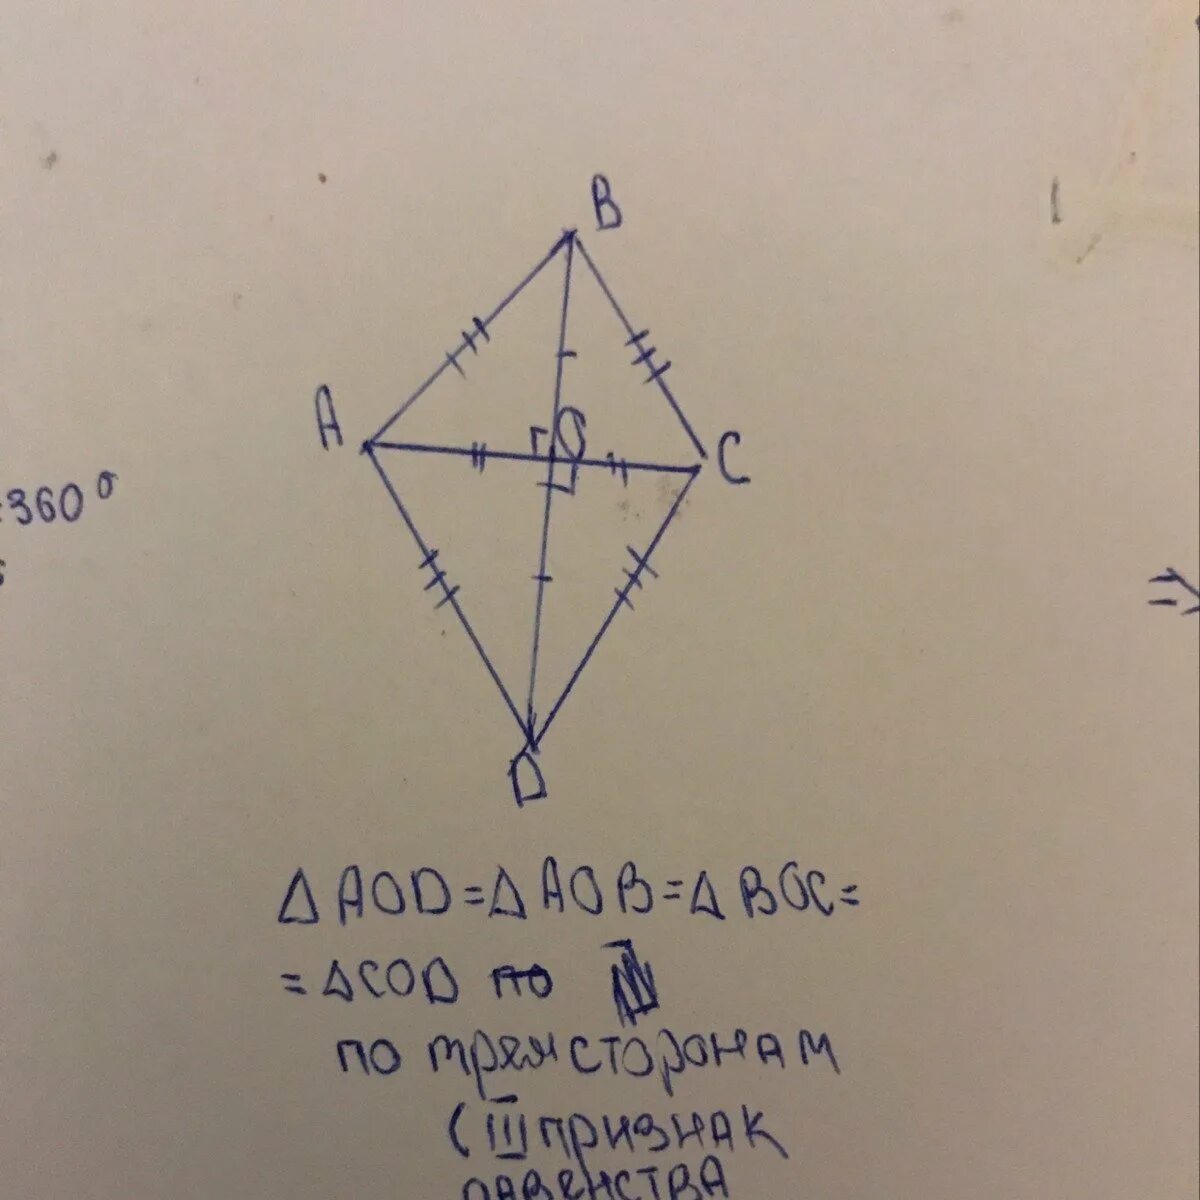 B
A
O
C
=360°
D
=>
△AOD=△AOB=△BOC=
=△COD по
по трем сторонам
(III признак
равенства